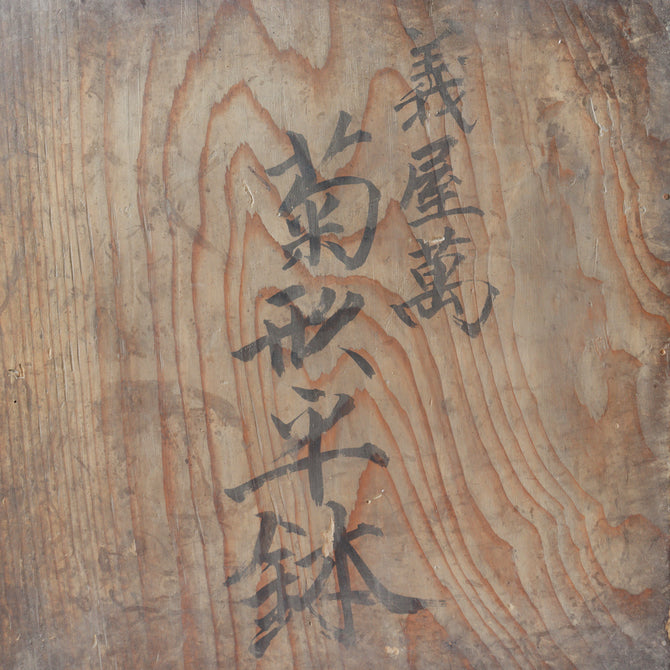 義屋萬
菊形平鉢